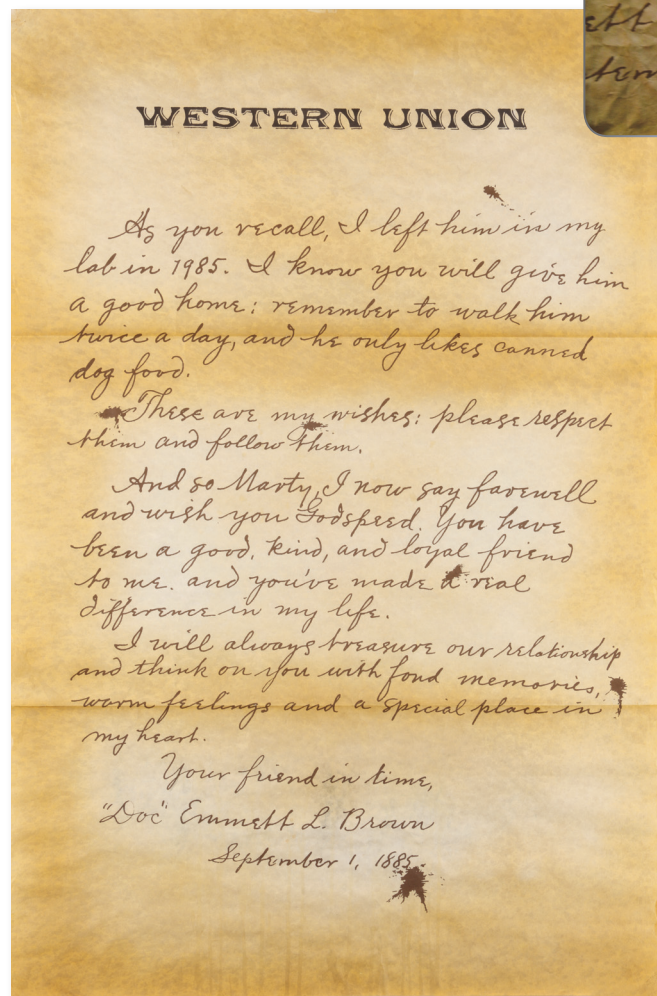 WESTERN UNION
As you recall, I left him in my
lab in 1985. I know you will give him
a good home: remember to walk him
twice a day, and he only likes canned
dog food.
These are my wishes: please respect
them and follow them.
And so Marty, I now say farewell
and wish you Godspeed. You have
been a good, kind, and loyal friend
to me. and you've made a real
difference in my life.
I will always treasure our relationship
and think on you with fond memories,
warm feelings and a special place in
my heart.
Your friend in time,
"Doc" Emmett L. Brown
September 1, 1885.